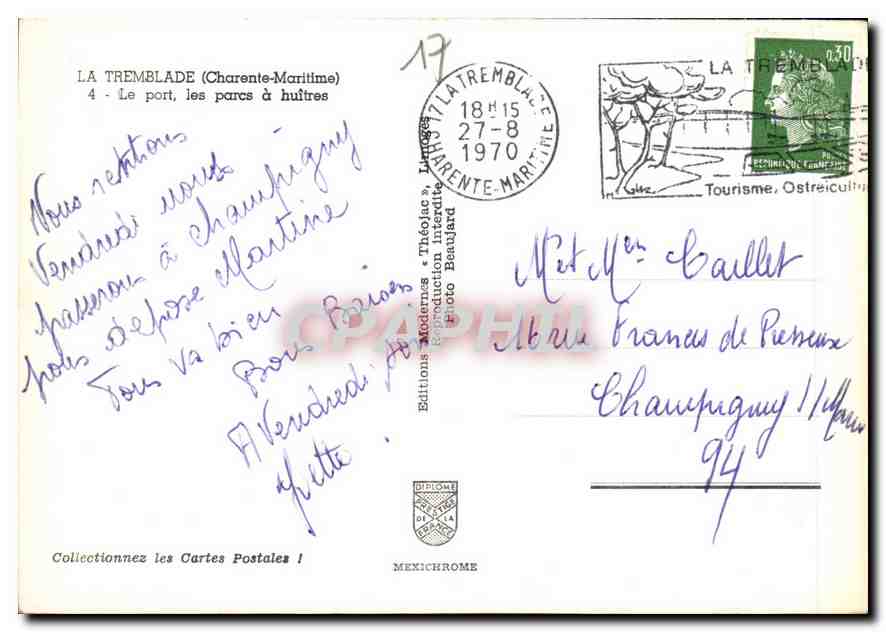 17
LA TREMBLADE (Charente-Maritime)
4 - Le port, les parcs à huîtres
17 LA TREMBLADE
18H15
27-8
1970
CHARENTE-MARITIME
LA TREMBLADE
Tourisme, Ostreicultu
0,30
REPUBLIQUE FRANCAISE
Nous rentrons
Vendredi nous
passerons à Champigny
pour déposé Martine
Tous va bien
Bons Baisers
A Vendredi soir
Yette.
Editions Modernes « Théojac », Limoges
Reproduction interdite
Photo Beaujard
M et Men Caillet
16 rue Francis de Pressensé
Champigny s/ Marne
94
CPAPHIL
DIPLOME
PRESTIGE
DE LA
FRANCE
Collectionnez les Cartes Postales !
MEXICHROME